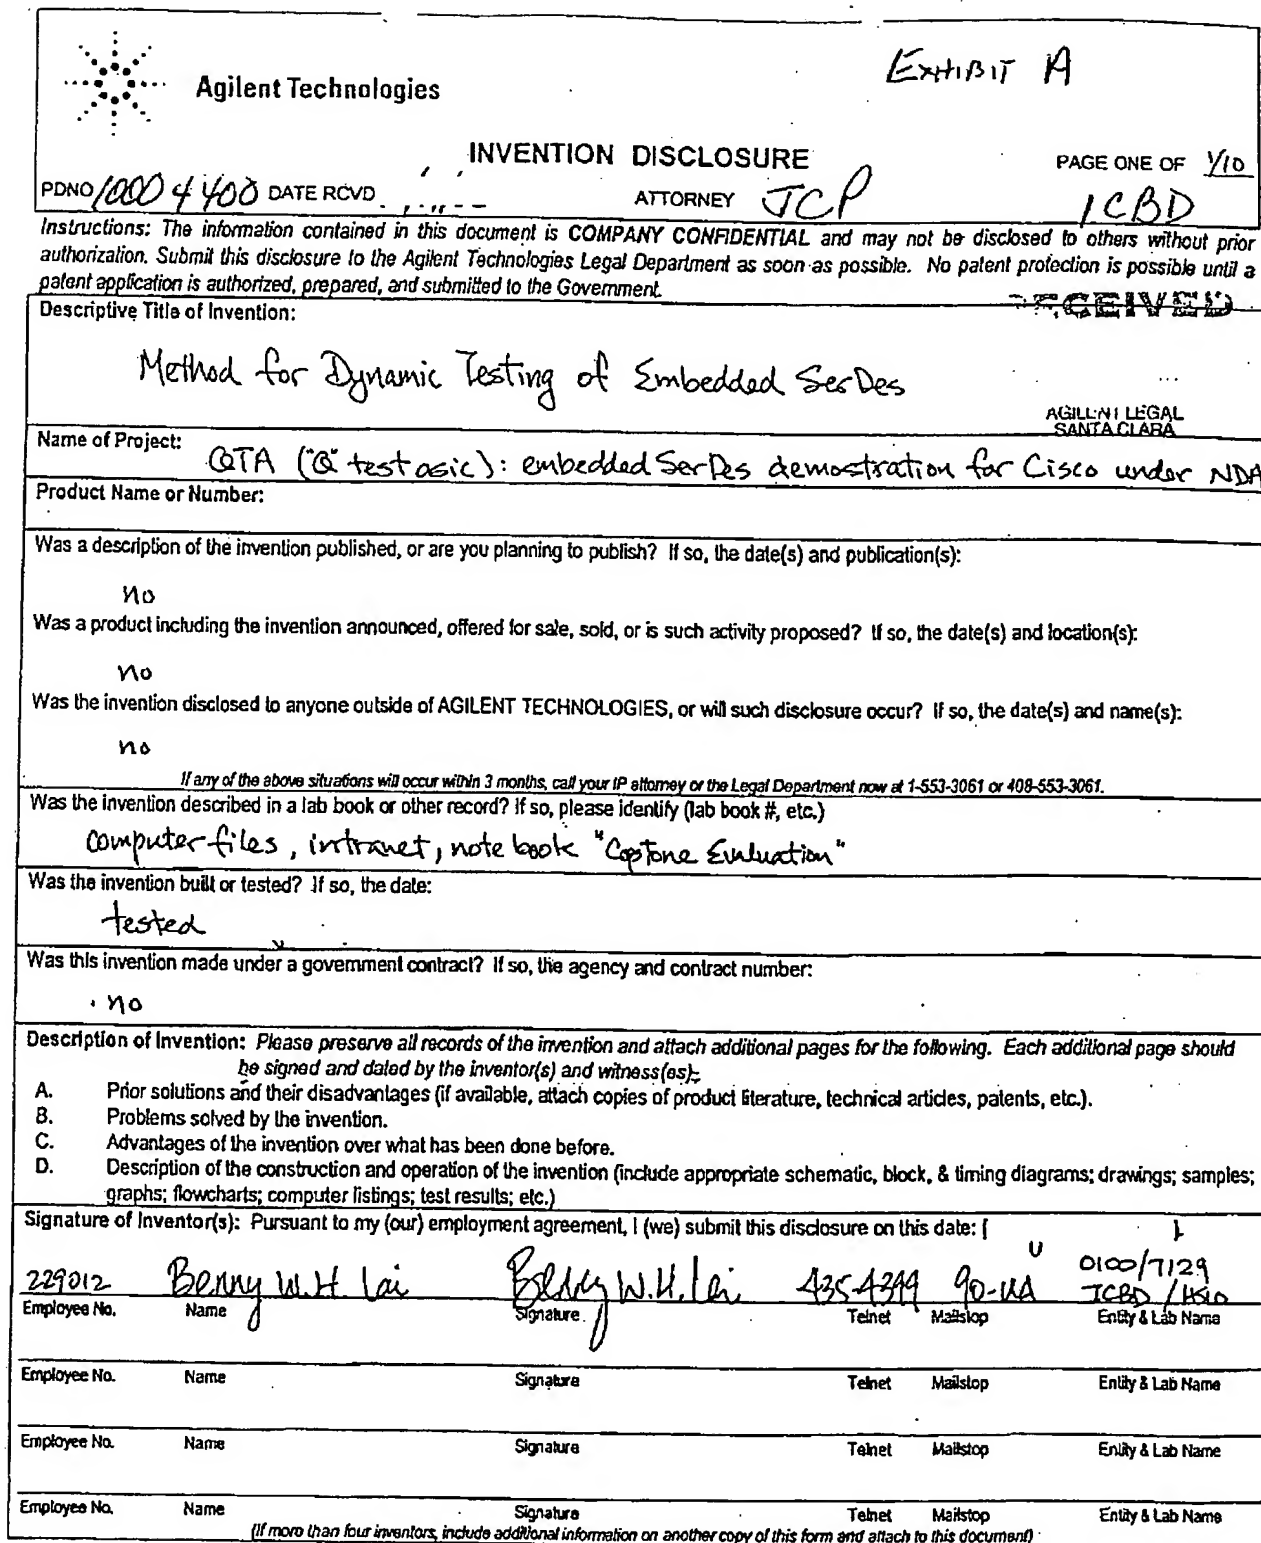 Agilent Technologies
EXHIBIT A
INVENTION DISCLOSURE
PAGE ONE OF 1/10
PDNO 10004400 DATE RCVD
ATTORNEY JCP
ICBD
Instructions: The information contained in this document is COMPANY CONFIDENTIAL and may not be disclosed to others without prior
authorization. Submit this disclosure to the Agilent Technologies Legal Department as soon as possible. No patent protection is possible until a
patent application is authorized, prepared, and submitted to the Government.
RECEIVED
Descriptive Title of Invention:
Method for Dynamic Testing of Embedded SerDes
AGILENT LEGAL
SANTA CLARA
Name of Project:
QTA ("Q" test asic): embedded SerDes demostration for Cisco under NDA
Product Name or Number:
Was a description of the invention published, or are you planning to publish? If so, the date(s) and publication(s):
no
Was a product including the invention announced, offered for sale, sold, or is such activity proposed? If so, the date(s) and location(s):
no
Was the invention disclosed to anyone outside of AGILENT TECHNOLOGIES, or will such disclosure occur? If so, the date(s) and name(s):
no
If any of the above situations will occur within 3 months, call your IP attorney or the Legal Department now at 1-553-3061 or 408-553-3061.
Was the invention described in a lab book or other record? If so, please identify (lab book #, etc.)
computer files, intranet, note book "Capstone Evaluation"
Was the invention built or tested? If so, the date:
tested
Was this invention made under a government contract? If so, the agency and contract number:
no
Description of Invention: Please preserve all records of the invention and attach additional pages for the following. Each additional page should
be signed and dated by the inventor(s) and witness(es).
A. Prior solutions and their disadvantages (if available, attach copies of product literature, technical articles, patents, etc.).
B. Problems solved by the invention.
C. Advantages of the invention over what has been done before.
D. Description of the construction and operation of the invention (include appropriate schematic, block, & timing diagrams; drawings; samples;
graphs; flowcharts; computer listings; test results; etc.)
Signature of Inventor(s): Pursuant to my (our) employment agreement, I (we) submit this disclosure on this date: [ ].
0100/7129
229012 Benny W.H. Lai Benny W.H. Lai 435-4344 90-UA ICBD / HSIO
Employee No. Name Signature Telnet Mailstop Entity & Lab Name
Employee No. Name Signature Telnet Mailstop Entity & Lab Name
Employee No. Name Signature Telnet Mailstop Entity & Lab Name
Employee No. Name Signature Telnet Mailstop Entity & Lab Name
(If more than four inventors, include additional information on another copy of this form and attach to this document)